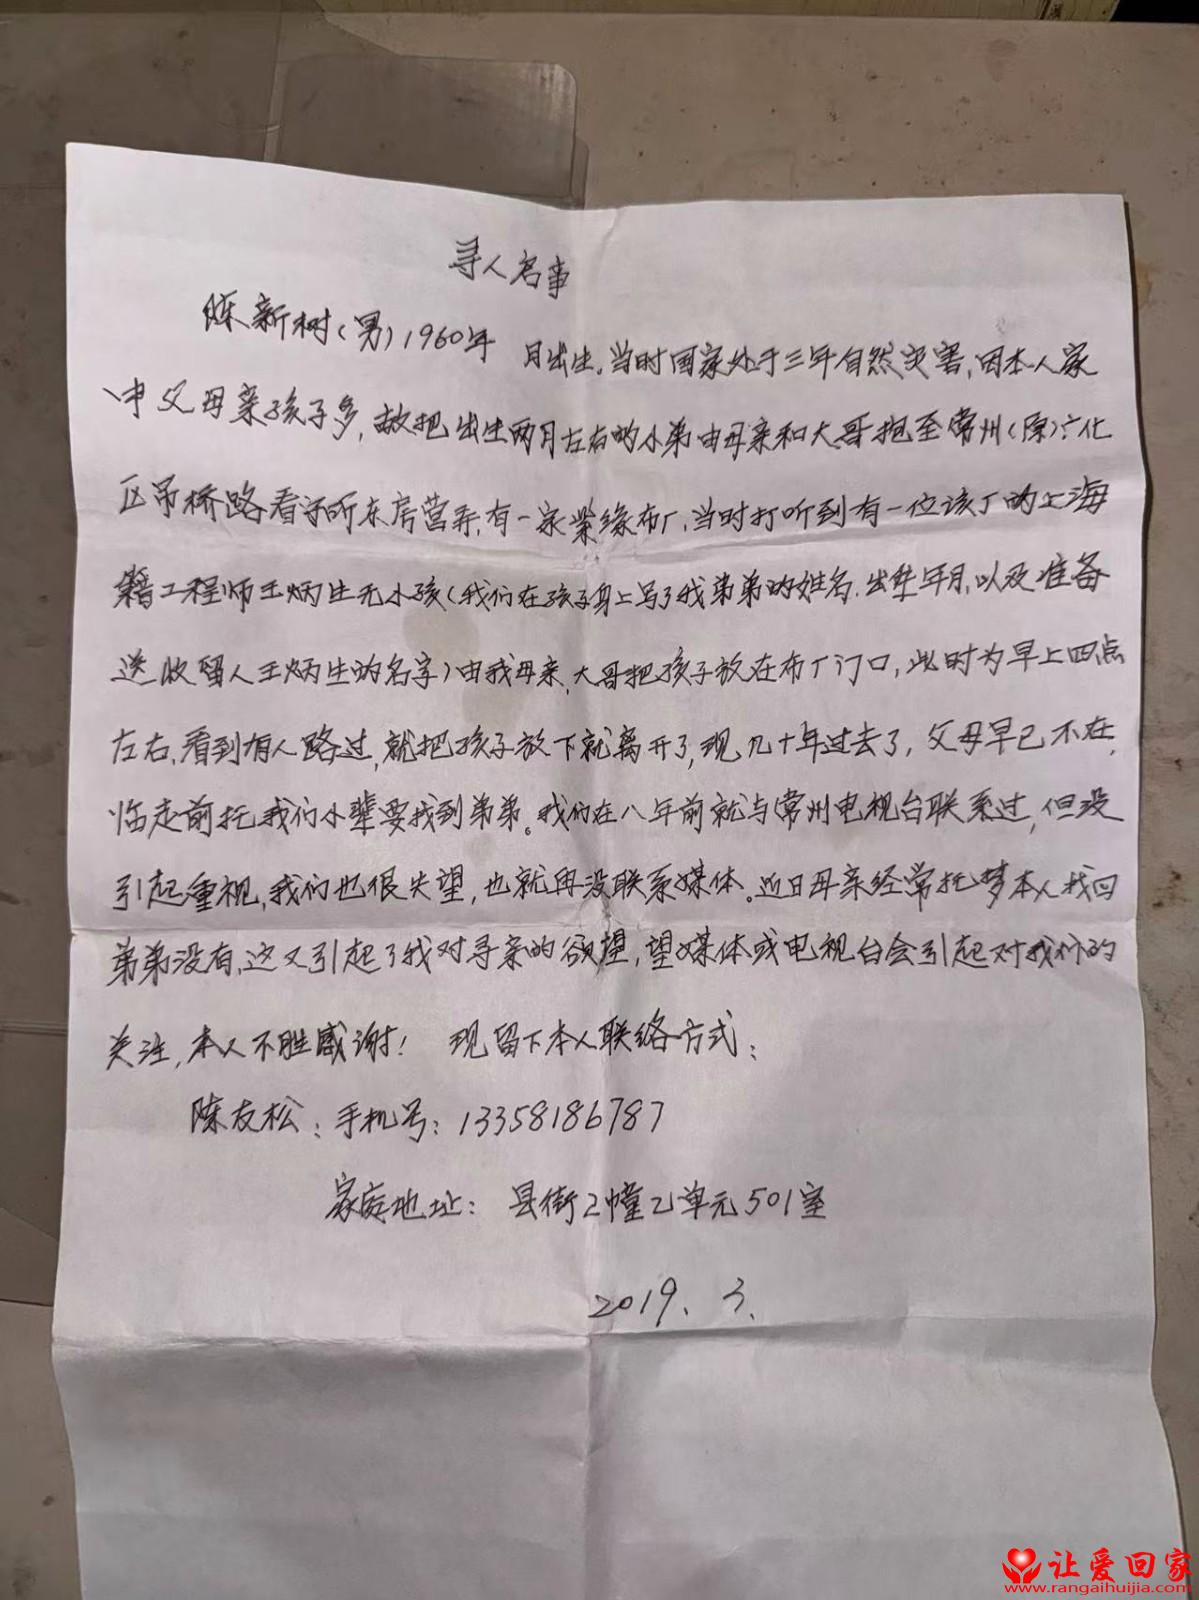 寻人启事
陈新树(男)1960年 月出生。当时国家处于三年自然灾害,因本人家
中父母亲孩子多,故把出生两月左右的小弟由母亲和大哥抱至常州(原)广化
区吊桥路看守所东房营弄,有一家紫缘布厂,当时打听到有一位该厂的上海
籍工程师王炳生无小孩(我们在孩子身上写了我弟弟的姓名.出生年月,以及准备
送收留人王炳生的名字)由我母亲、大哥把孩子放在布厂门口,此时为早上四点
左右,看到有人路过,就把孩子放下就离开了,现几十年过去了,父母早已不在,
临走前托我们小辈要找到弟弟。我们在八年前就与常州电视台联系过,但没
引起重视,我们也很失望,也就再没联系媒体。近日母亲经常托梦本人找回
弟弟没有,这又引起了我对寻亲的欲望,望媒体或电视台会引起对我们的
关注,本人不胜感谢! 现留下本人联络方式:
陈友松:手机号:13358186787
家庭地址:县街2幢乙单元501室
2019、3、
让爱回家
www.rangaihuijia.com